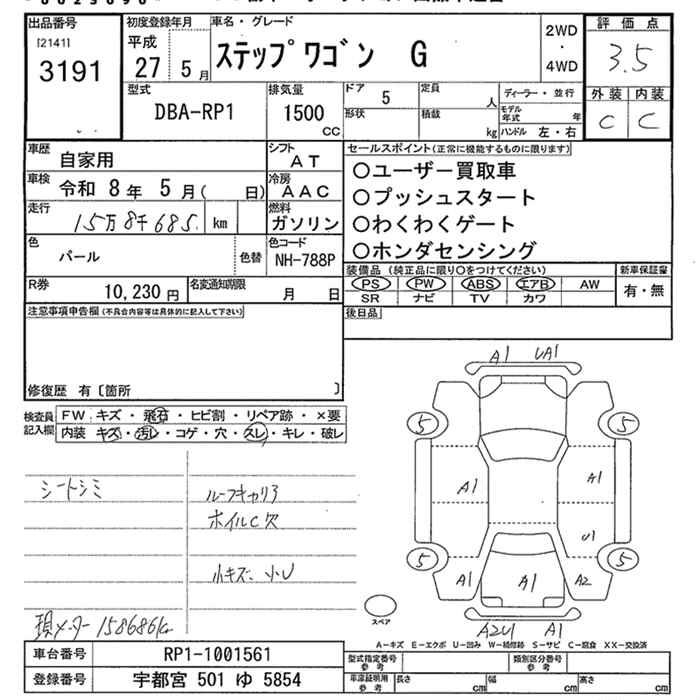 出品番号
[2141]
3191
初度登録年月
平成
27 5 月
車名・グレード
ステップワゴン G
2WD
・
4WD
評価点
3.5
外装 内装
C C
型式
DBA-RP1
排気量
1500
CC
ドア
5
形状
定員
人
積載
kg
ディーラー・並行
モデル年式 年
ハンドル 左・右
車歴
自家用
シフト
AT
車検
令和 8年 5月( 日)
冷房
AAC
走行
15万8千685 km
燃料
ガソリン
色
パール
色替
色コード
NH-788P
R券
10,230 円
名変通知期限
月 日
セールスポイント(正常に機能するものに限ります)
○ユーザー買取車
○プッシュスタート
○わくわくゲート
○ホンダセンシング
装備品(純正品に限り○をつけてください)
新車保証書
PS PW ABS エアB AW
有・無
SR ナビ TV カワ
後日品
注意事項申告欄(不具合内容等は具体的に記入して下さい)
修復歴 有〔箇所 〕
検査員記入欄
FW キズ・飛石・ヒビ割・リペア跡・×要
内装 キズ・汚レ・コゲ・穴・スレ・キレ・破レ
シートシミ
ルーフキャリア
ホイルC欠
小キズ、小U
現メーター158686km
A1 UA1
5 5
A1 A1
U1
5 5
A1 A1 A2
スペア
A2U1 A1
A-キズ E-エクボ U-凹み W-補修跡 S-サビ C-腐食 XX-交換済
車台番号
RP1-1001561
登録番号
宇都宮 501 ゆ 5854
型式指定番号
参考
類別区分番号
参考
車庫証明用
参考
長さ cm
幅 cm
高さ cm